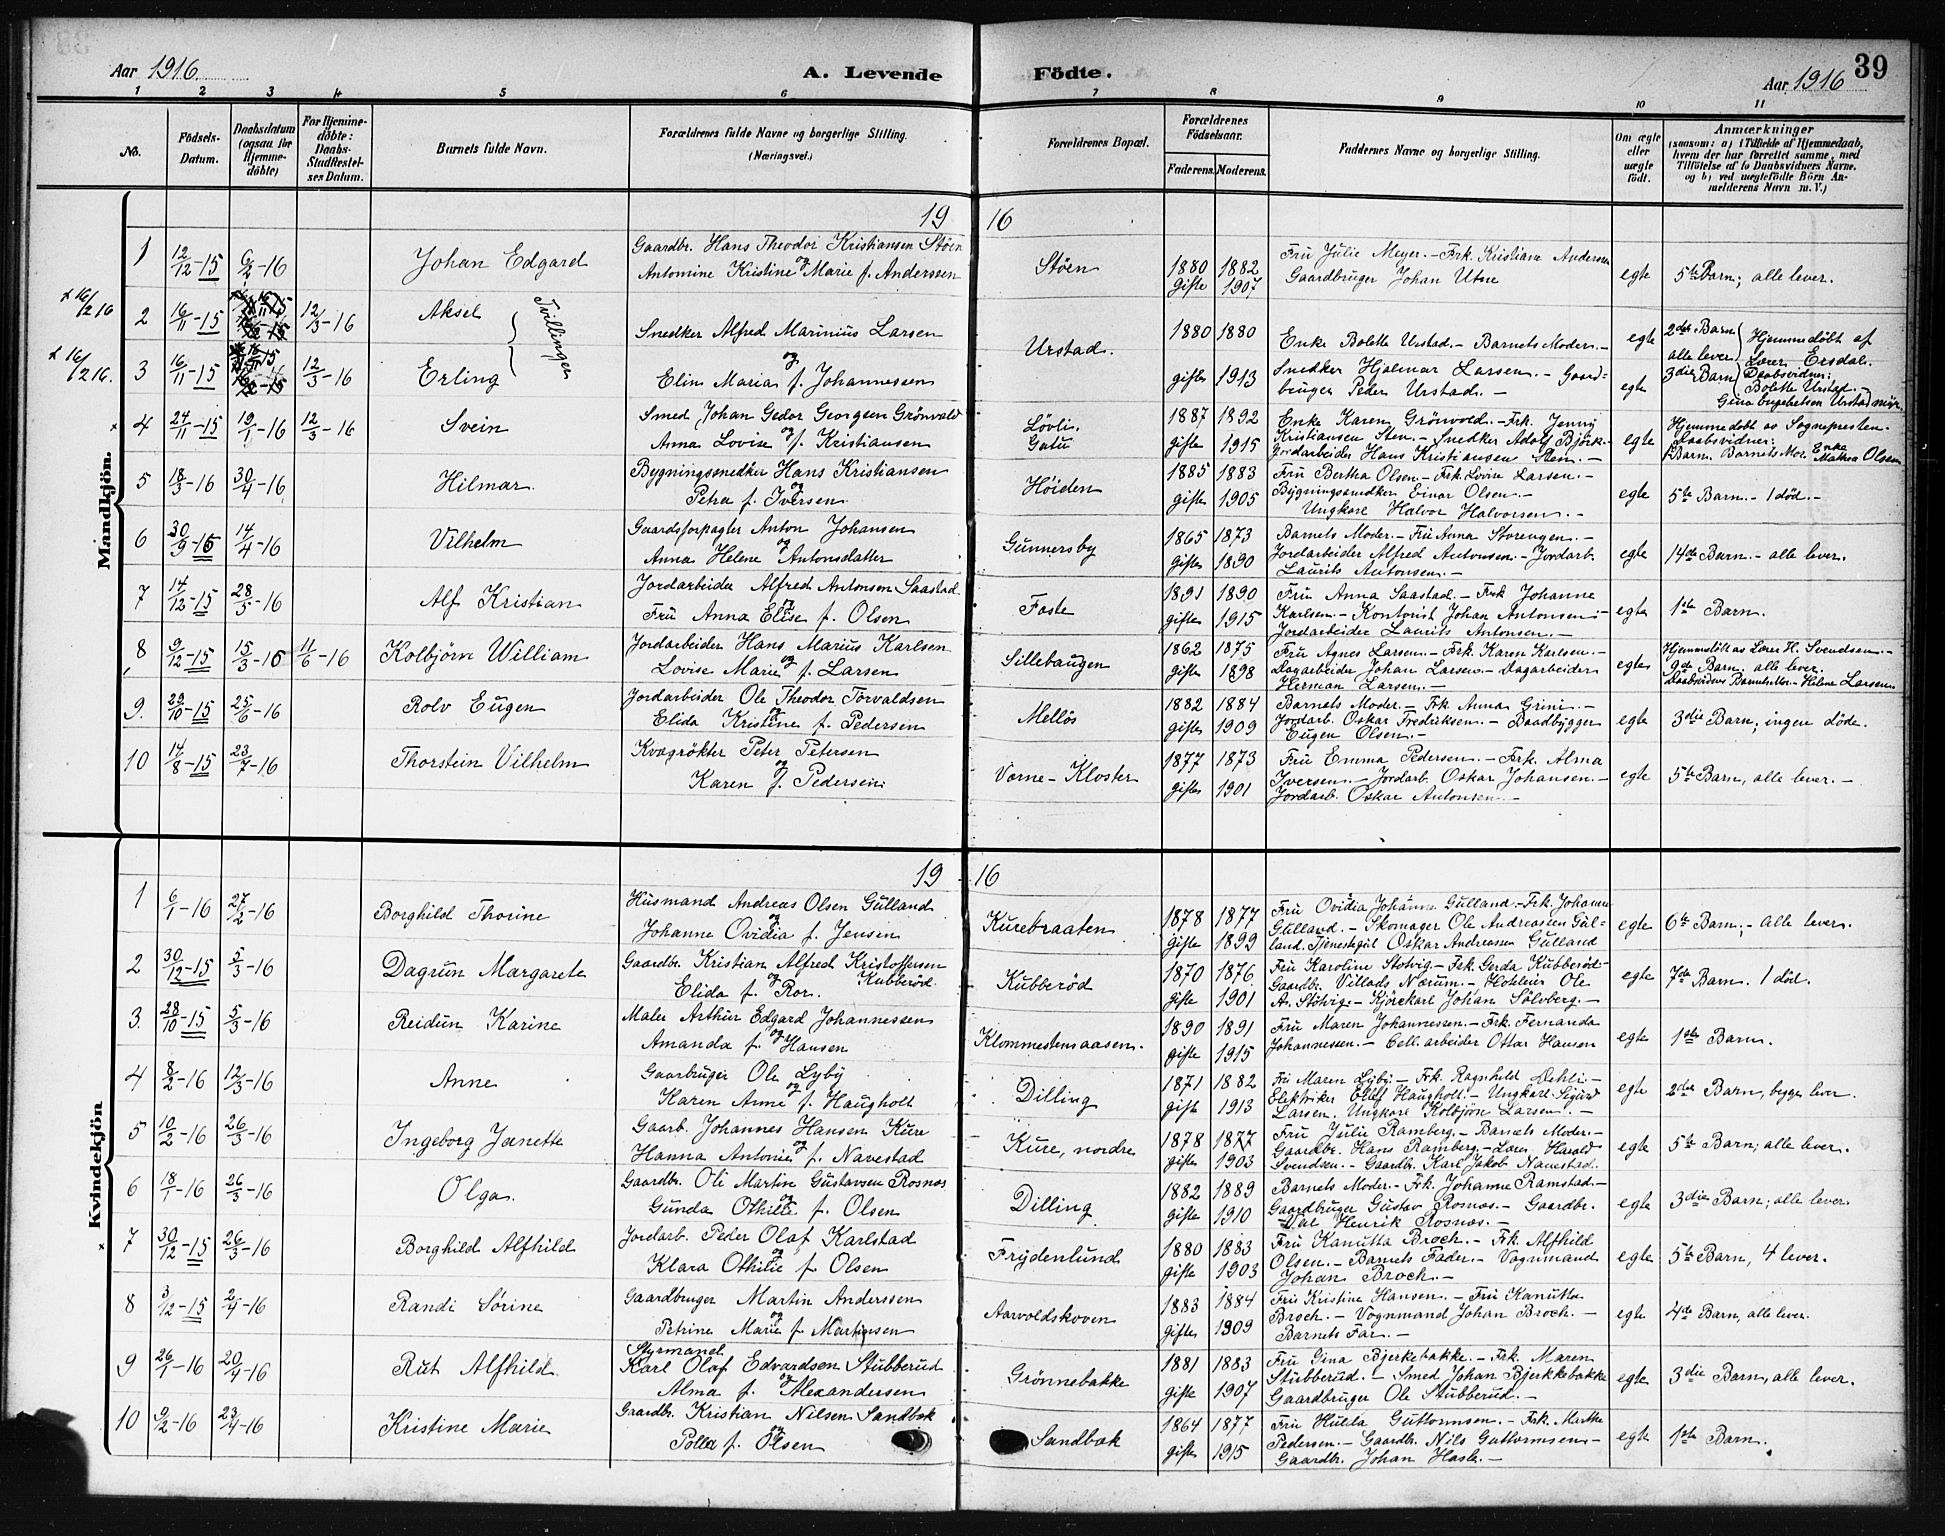 Aar 1916.
A. Levende Födte.
Aar 1916
39
1 2 3 4 5 6 7 8 9 10 11
No.
Födsels-Datum.
Daabsdatum (ogsaa for Hjemme-döbte)
For Hjemme-döbte: Daabs-Stadfæstel-ses Datum.
Barnets fulde Navn.
Forældrenes fulde Navne og borgerlige Stilling.
(Næringsvei.)
Forældrenes Bopæl.
Forældrenes Födselsaar.
Faderens. Moderens.
Faddernes Navne og borgerlige Stilling.
Om ægte eller uægte födt.
Anmærkninger
(saasom: a) i Tilfælde af Hjemmedaab,
hvem der har forrettet samme, med
Tilföielse af to Daabsvidners Navne,
og b) ved uægtefödte Börn An-
melderens Navn m. V.)
Mandkjön.
19 16
1 12/12-15 6/2-16 Johan Edgard Gaardbr. Hans Theodor Kristiansen Stöen
og
Antomine Kristine Marie f. Anderssen
Stöen 1880 1882 gifte 1907
Fru Julie Meyer.- Frk. Kristiane Andersen
Gaardbruger Johan Utne
egte 5te Barn; alle lever.
+ 16/2 16
2 16/11-15 12/3-16 Aksel
Tvillinger
Snedker Alfred Marinius Larsen
og
Elin Maria f. Johannessen
Urstad. 1880 1880 giftes 1913
Enke Bolette Urstad.- Barnets Moder.-
Snedker Hjalmar Larsen.- Gaard-
bruger Peder Urstad.-
egte 2det Barn
alle lever
Hjemmedöbt af
Lærer Eesdal.
+ 16/2 16.
3 16/11-15 12/3-16 Erling
egte 3die Barn
Daabsvidner:
Bolette Urstad.-
Gina Engebretsen Urstad
4 24/11-15 19/1-16 12/3-16 Svein
Smed Johan Gedor Georgsen Grönvold
og
Anna Lovise f. Kristiansen
Lövli. Gatu 1887 1892 gifte 1915
Enke Karen Grönvold.- Frk. Jenny
Kristiansen Sten.- Snedker Adolf Björk.-
Jordarbeider Hans Kristiansen Sten.-
egte Hjemmedöbt av Sognepresten.
Daabsvidner:
Barnets Mor. Enke Mathea Olsen
5 18/3-16 30/4-16 Hilmar.
Bygningssnedker Hans Kristiansen
og
Petra f. Iversen
Höiden 1885 1883 gifte 1905
Fru Bertha Olsen.- Frk. Lovise Larsen.-
Bygningssnedker Einar Olsen.-
Ungkarl Halvor Halvorsen.-
egte 5te Barn.- 1 död.-
6 30/9-15 14/4-16 Vilhelm
Gaardsforpagter Anton Johansen
og
Anna Helene Antonsdatter
Gunnersby 1865 1873 giftes 1890
Barnets Moder.- Fru Anna Storengen.-
Jordarbeider Alfred Antonsen.- Jordarb.
Laurits Antonsen.-
egte 14de Barn.- alle lever.
7 14/12-15 28/5-16 Alf Kristian
Jordarbeider Alfred Antonsen Saastad.
og
Fru Anna Elise f. Olsen
Foste 1891 1890 giftes 1915
Fru Anna Saastad.- Frk Johanne
Karlsen.- Kontorist Johan Antonsen.-
Jordarbeider Laurits Antonsen.-
egte 1ste Barn.
8 9/12-15 15/3-16 11/6-16 Kolbjörn William
Jordarbeider Hans Marius Karlsen
og
Lovise Marie f. Larsen
Sillebaugen 1862 1875 giftes 1898
Fru Agnes Larsen.- Frk. Karen Karlsen.-
Dagarbeider Johan Larsen.- Dagarbeider
Herman Larsen.-
egte Hjemmedöbt av Lærer H. Svendsen.-
9de Barn. alle lever.
Daabsvidner Barnets Mor.- Helene Larsen
9. 29/10-15 25/6-16 Rolv Eugen
Jordarbeider Ole Theodor Torvaldsen
og
Elida Kristine f. Pedersen
Mellös 1882 1884 giftes 1909
Barnets Moder.- Frk. Anna Grini.-
Jordarb. Oskar Fredriksen.- Baadbygger
Eugen Olsen.-
egte 3die Barn; ingen döde.
10 14/8-15 23/7-16 Thorstein Vilhelm
Kvægrökter Peter Petersen
og
Karen f. Pedersen
Værne-Kloster 1877 1873 giftes 1901
Fru Emma Pedersen.- Frk. Alma
Iversen.- Jordarb. Oskar Johansen.-
Jordarb. Oskar Antonsen.-
egte 5te Barn, alle lever.-
Kvindekjön
19 16
1 6/1-16 27/2-16 Borghild Thorine
Husmand Andreas Olsen Gulland
og
Johanne Ovidia f. Jensen
Kurebraaten 1878 1877 gifte 1899
Fru Ovidia Johanne Gulland.- Frk. Johanne
Gulland.- Skomager Ole Andreassen Gul-
land. Tjenestegut Oskar Andreasen Gulland
egte 6te Barn.- Alle lever.
2 30/12-15 5/3-16 Dagrun Margarete
Gaardbr. Kristian Alfred Kristoffersen
og Kubberöd.
Elida f. Ror.
Kubberöd 1870 1876 gifte 1901
Fru Karoline Stotvig.- Frk. Gerda Kubberöd-
Gaardbr. Villads Nærum.- Hoteleier Ole
A. Stötvig.- Kjörekarl Johan Sölvberg.-
egte 7de Barn. 1 död.
3. 28/10-15 5/3-16 Reidun Karine
Maler Arthur Edgard Johannessen
og
Amanda f. Hansen
Klommestensaasen. 1890 1891 gifte 1915
Fru Maren Johannessen.- Frk. Fernanda
Johannessen.- Cell. arbeider Ottar Hansen
egte 1ste Barn.
4 8/2-16 12/3-16 Anne
Gaarbruger Ole Lyby
og
Karen Anne f. Haugholt
Dilling 1871 1882 gift 1913
Fru Maren Lyby.- Frk. Ragnhild Oehli.-
Elektriker Olaf Haugholt.- Ungkarl Sigurd
Larsen. Ungkarl Kolbjörn Larsen.-
egte 2det Barn, begge lever.
5 10/2-16 26/3-16 Ingeborg Janette
Gaarb. Johannes Hansen Kure
og
Hanna Antonie f. Navestad
Kure, nordre 1878 1877 giftes 1903
Fru Julie Ramberg.- Barnets Moder.-
Gaardbr. Hans Ramberg.- Lærer Harald
Svendsen.- Gaardbr. Karl Jakob Navestad.
egte 5te Barn; alle lever.
6 18/1-16 26/3-16 Olga.
Gaardbr. Ole Martin Gustavsen Rosnæs
og
Gunda Othilie f. Olsen
Dilling 1882 1889 gifte 1910
Barnets Moder.- Frk. Johanne Ramstad.-
Gaardbruger Gustav Rosnæs.- Gaardbr.
Henrik Rosnæs.-
egte 3die Barn; alle lever.
7 30/12-15 26/3-16 Borghild Alfhild
Jordarb. Peder Olaf Karlstad
og
Klara Othilie f. Olsen
Frydenlund 1880 1883 gifte 1903
Fru Kanutta Broch.- Frk. Alfhild
Olsen.- Barnets Fader.- Vognmand
Johan Broch.-
egte 5te Barn, 4 lever.
8 3/12-15 2/4-16 Randi Sörine
Gaardbruger Martin Anderssen
og
Petrine Marie f. Martinsen
Aarvoldskoven 1883 1884 giftes 1909
Fru Kristine Hansen.- Fru Kanutta
Broch.- Vognmand Johan Broch.-
Barnets Far.-
egte 4de Barn, alle lever.
9 26/1-16 20/4-16 Rut Alfhild.
Styrmand
Karl Olaf Edvardsen Stubberud
og
Alma f. Alexandersen
Grönnebakke 1881 1883 gifte 1907
Fru Gina Bjerkebakke.- Frk. Maren
Stubberud.- Smed Johan Bjerkkebakke
Gaardbruger Ole Stubberud.-
egte 3die Barn, alle lever.
10 9/2-16 23/4-16 Kristine Marie
Gaardbr. Kristian Nilsen Sandbæk
og
Polla f. Olsen
Sandbæk 1864 1877 giftes 1915
Fru Hulda Guttormsen.- Frk. Marthe
Pedersen.- Gaardbr. Nils Guttormsen-
Gaardbr. Johan Hasle.-
egte 1ste Barn.